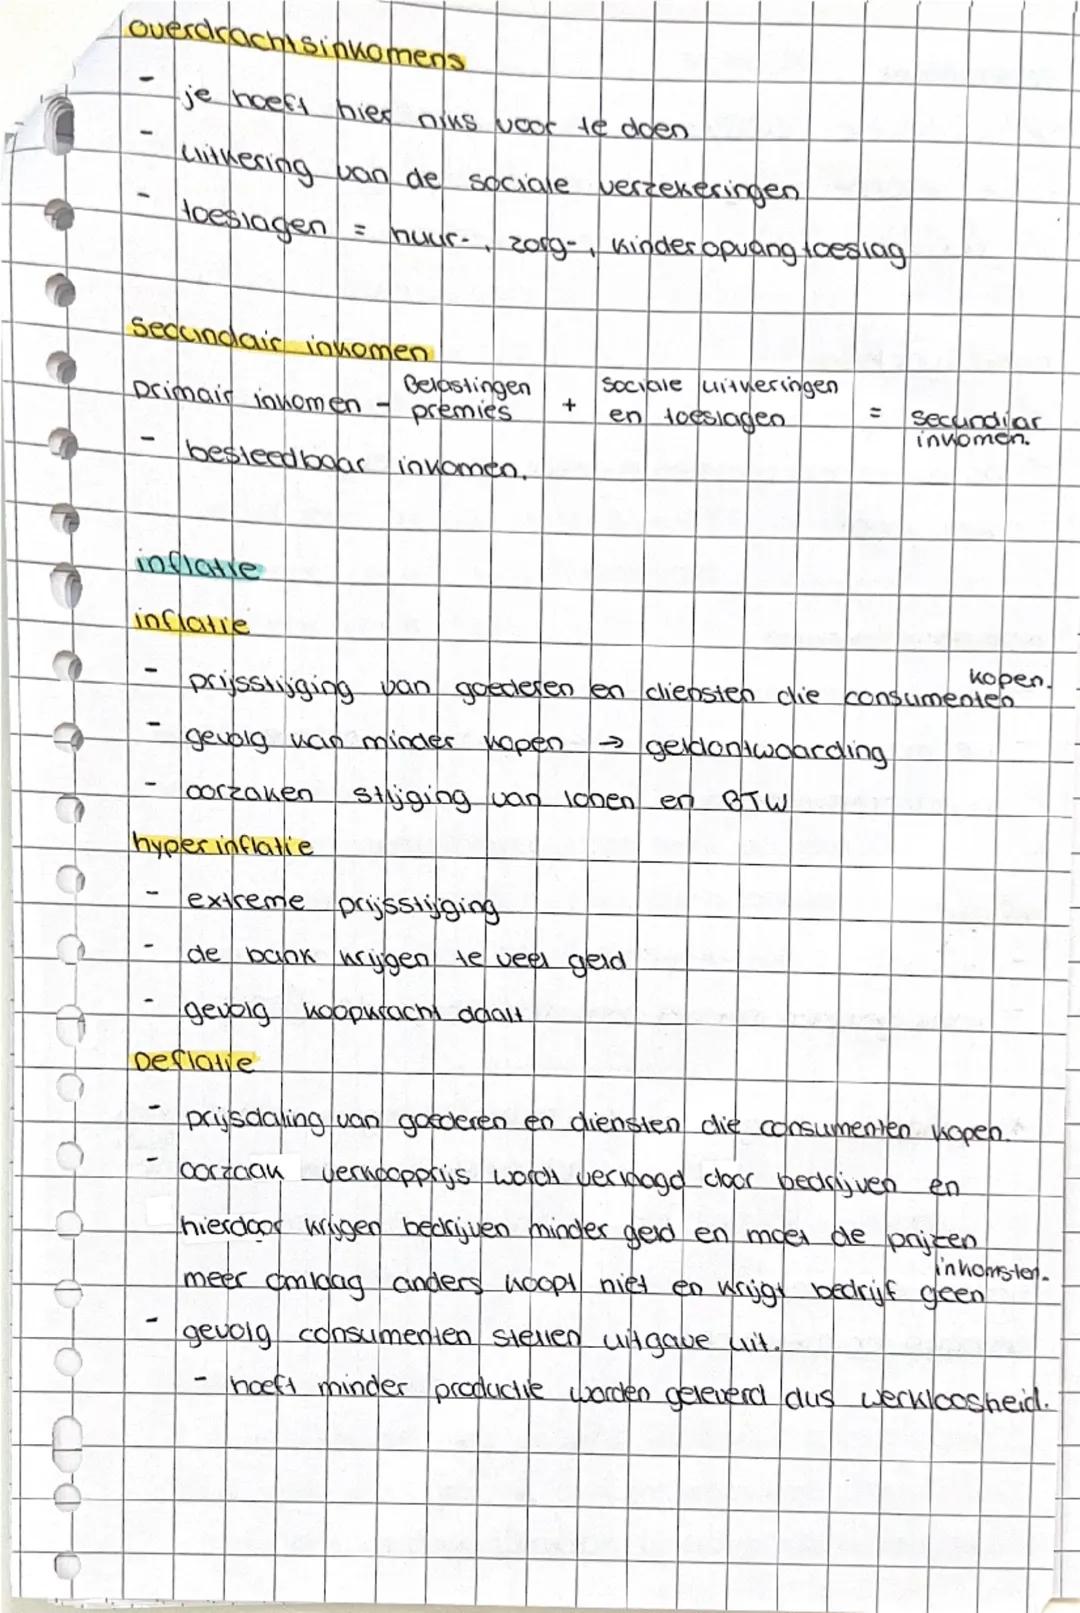 overdrachtsinkomens
- je hoeft hier niks voor te doen
- uitkering van de sociale verzekeringen
- toeslagen = huur-, zorg-, kinderopvang toeslag
secundair inkomen
primair inkomen - Belastingen premies + sociale uitkeringen en toeslagen = secundiar inkomen.
- besteedbaar inkomen.
inflatie
inflatie
- prijsstijging van goederen en diensten die consumenten kopen.
- gevolg van minder kopen → geldontwaarding
- oorzaken stijging van lonen en BTW
hyperinflatie
- extreme prijsstijging
- de bank krijgen te veel geld
- gevolg koopkracht daalt
Deflatie
- prijsdaling van goederen en diensten die consumenten kopen.
- oorzaak verkoopprijs wordt verhoogd door bedrijven en
hierdoor krijgen bedrijven minder geld en moet de prijzen
meer omlaag anders koopt niet en krijgt bedrijf geen inkomsten.
- gevolg consumenten stellen uitgave uit.
- hoeft minder productie worden geleverd dus werkloosheid.